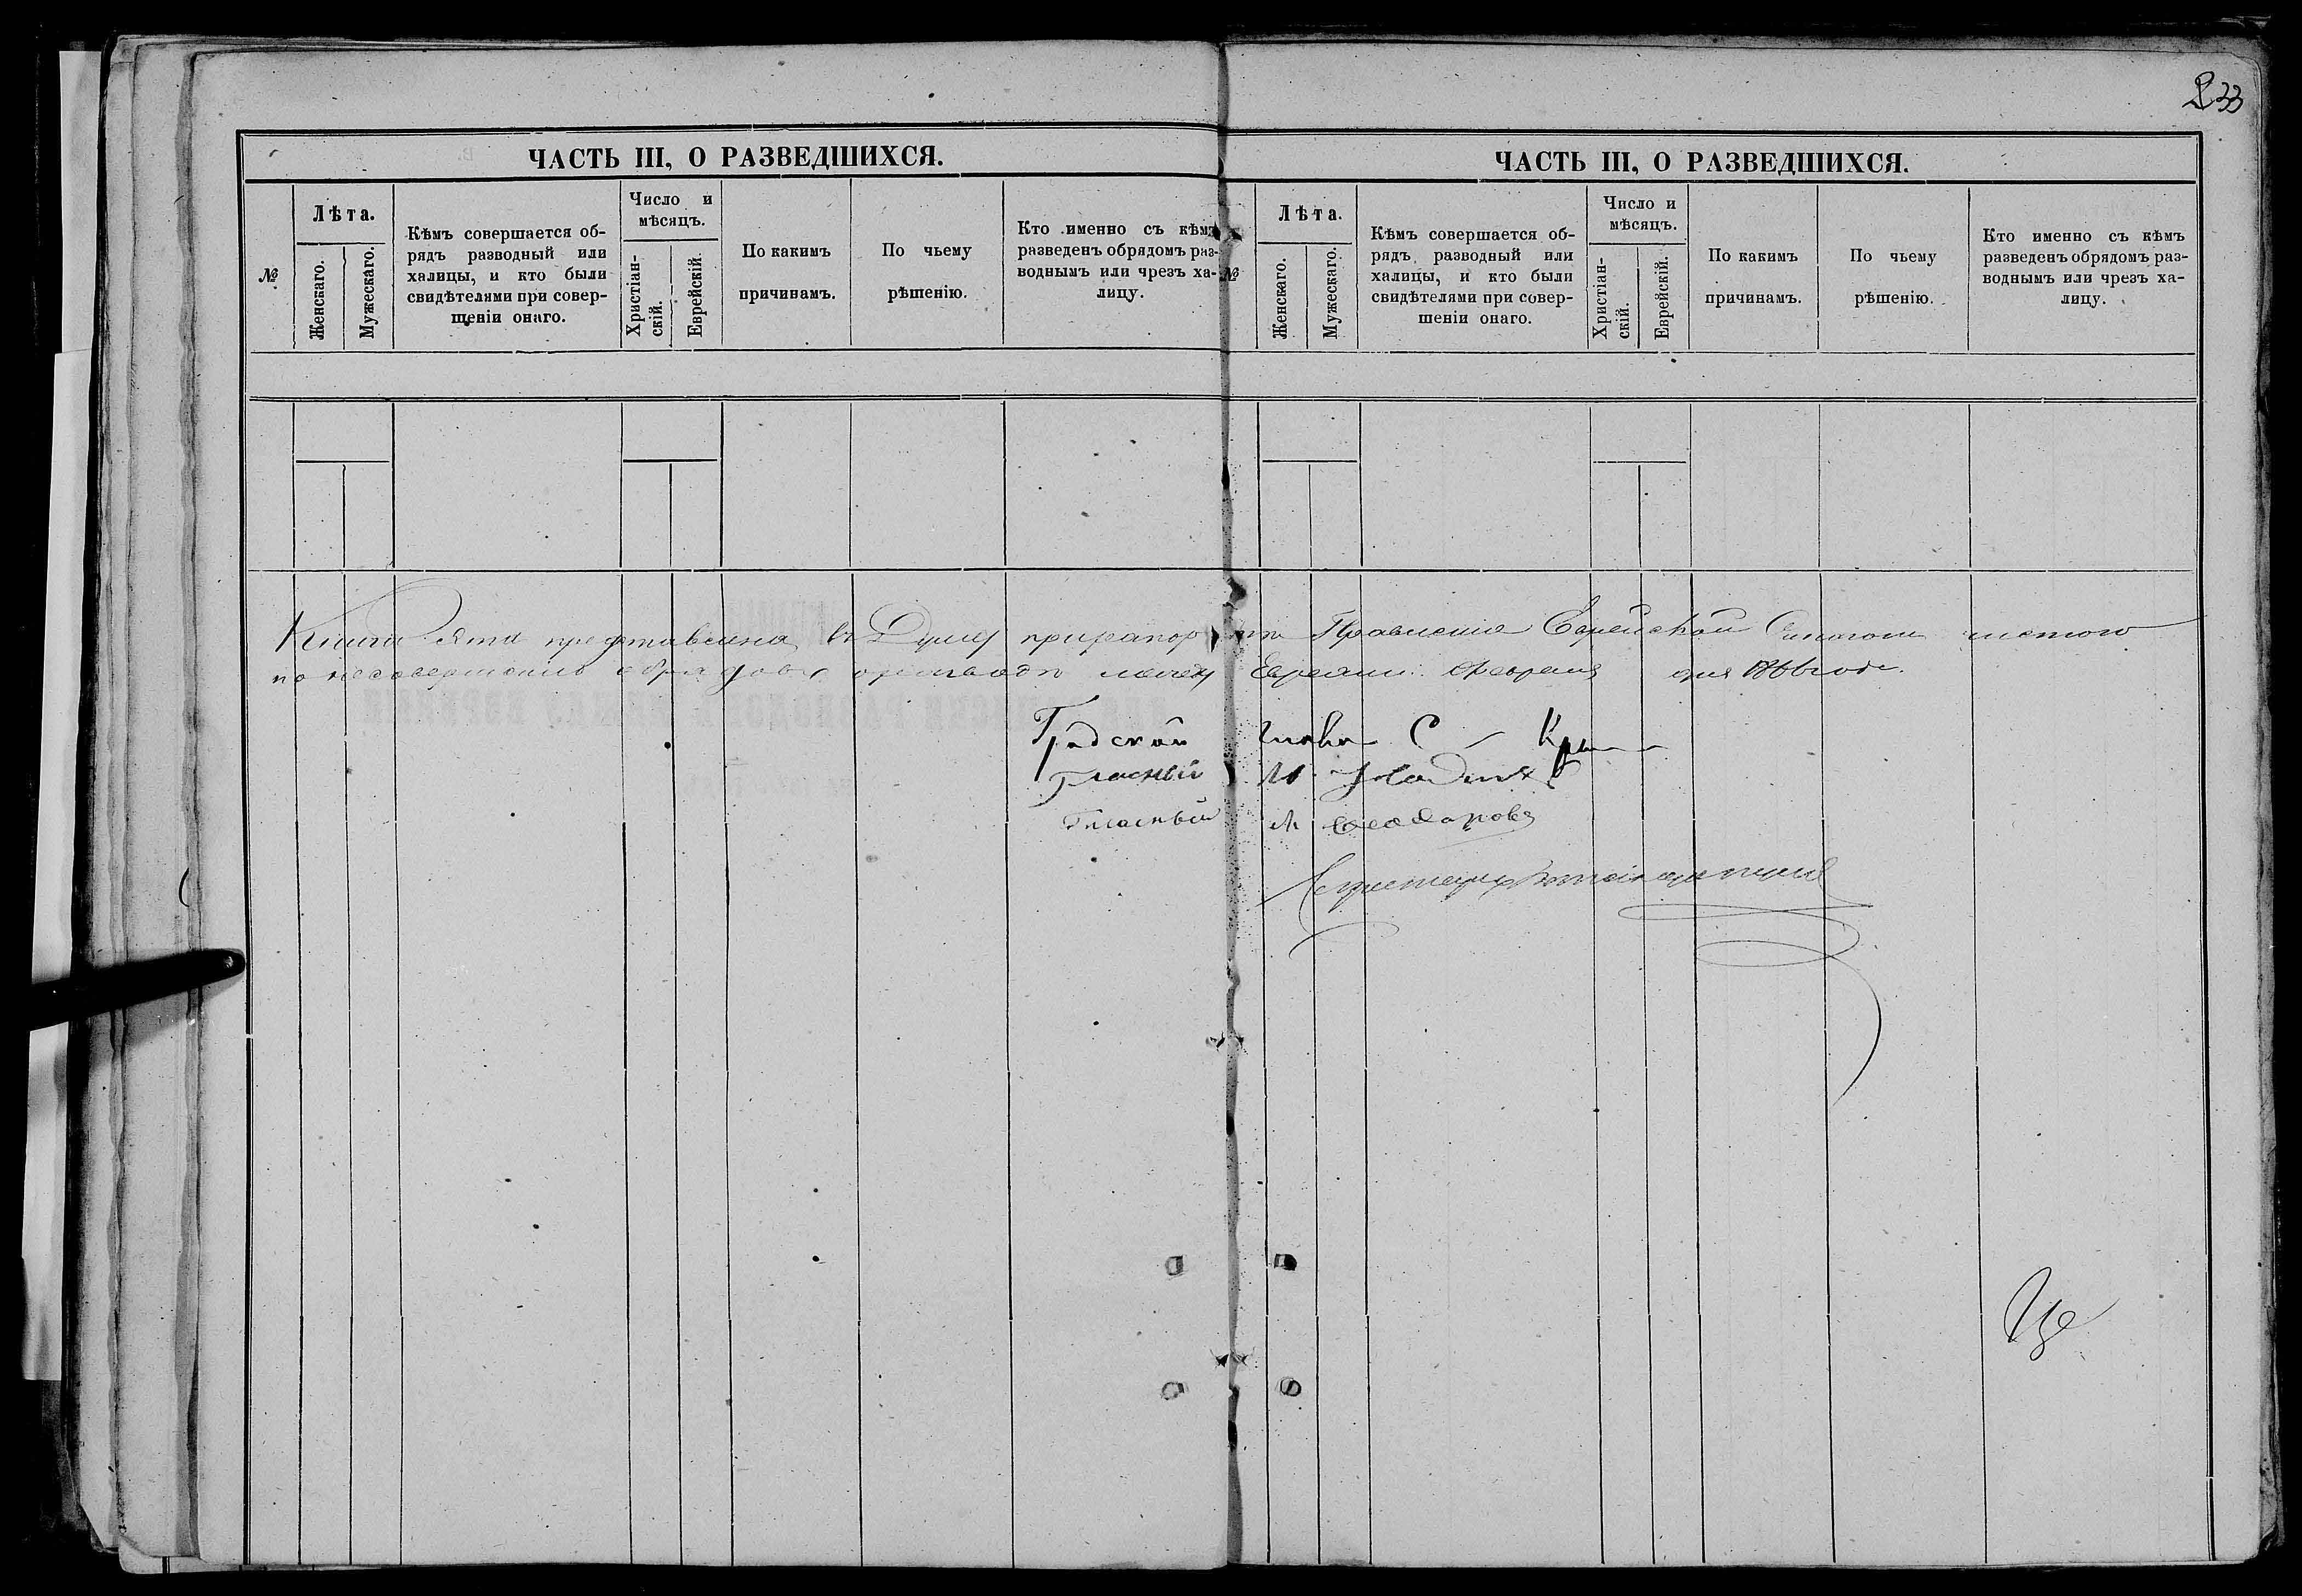 233
ЧАСТЬ III, О РАЗВЕДШИХСЯ.
№
Лѣта.
Женскаго.
Мужескаго.
Кѣмъ совершается об-
рядъ разводный или
халицы, и кто были
свидѣтелями при совер-
шеніи онаго.
Число и
мѣсяцъ.
Христіан-
скій.
Еврейскій.
По какимъ
причинамъ.
По чьему
рѣшенію.
Кто именно съ кѣмъ
разведенъ обрядомъ раз-
воднымъ или чрезъ ха-
лицу.
ЧАСТЬ III, О РАЗВЕДШИХСЯ.
№
Лѣта.
Женскаго.
Мужескаго.
Кѣмъ совершается об-
рядъ разводный или
халицы, и кто были
свидѣтелями при совер-
шеніи онаго.
Число и
мѣсяцъ.
Христіан-
скій.
Еврейскій.
По какимъ
причинамъ.
По чьему
рѣшенію.
Кто именно съ кѣмъ
разведенъ обрядомъ раз-
воднымъ или чрезъ ха-
лицу.
Книга эта представлена въ Думу при рапортѣ Правленія Еврейской Синагоги
обрядовъ между Евреями Февраля дня
Градской Глава С
Гласный
Гласный